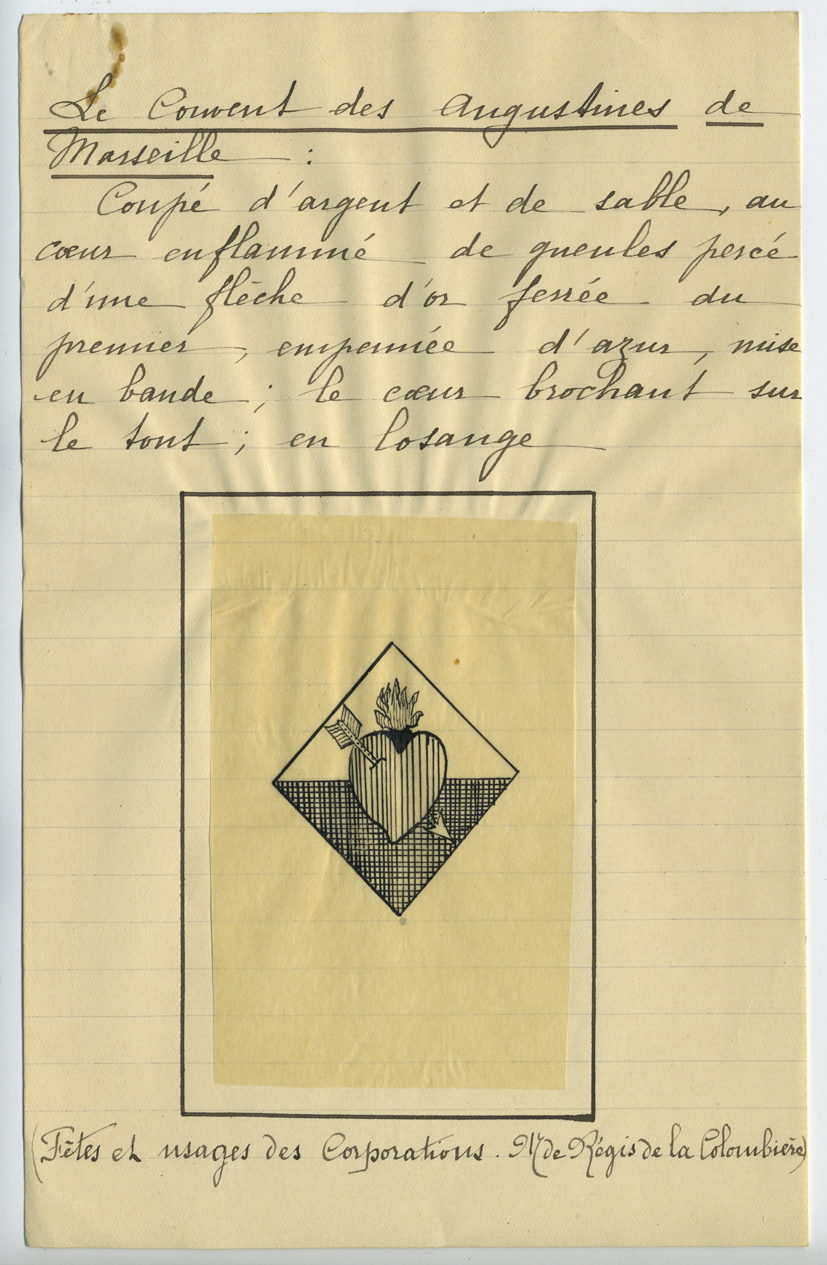 Le Couvent des Augustines de
Marseille :
Coupé d'argent et de sable, au
cœur enflammé de gueules percé
d'une flèche d'or ferrée du
premier, empennée d'azur, mise
en bande ; le cœur brochant sur
le tout ; en losange
(Fêtes et usages des Corporations. M. de Régis de la Colombière)